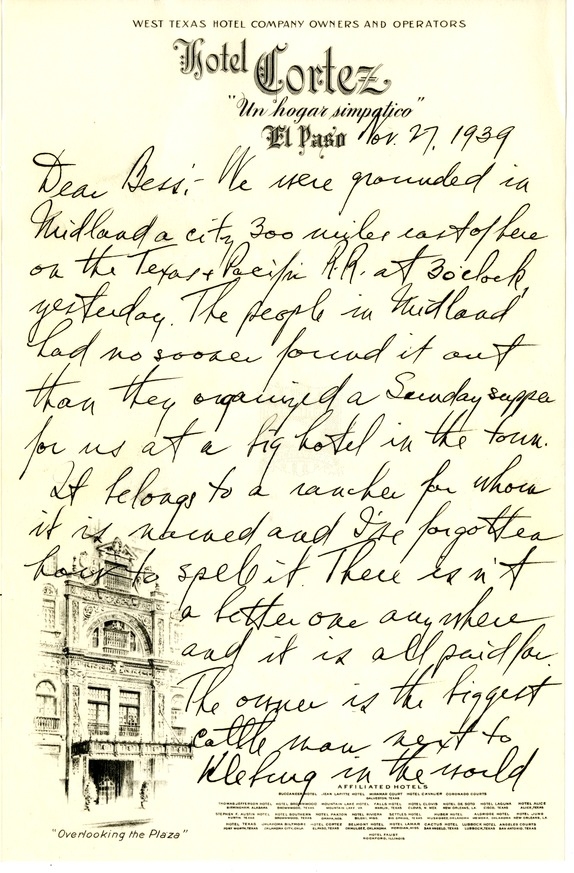 WEST TEXAS HOTEL COMPANY OWNERS AND OPERATORS
Hotel Cortez
"Un hogar simpatico"
El Paso Nov. 27, 1939
Dear Bess:- We were grounded in
Midland a city 300 miles east of here
on the Texas & Pacific R.R. at 3 o'clock,
yesterday. The people in Midland
had no sooner found it out
than they organized a Sunday supper
for us at a big hotel in the town.
It belongs to a rancher for whom
it is named and I've forgotten
how to spell it. There isn't
a better one anywhere
and it is all paid for.
The owner is the biggest
cattle man next to
Kleburg in the world
AFFILIATED HOTELS
"Overlooking the Plaza"